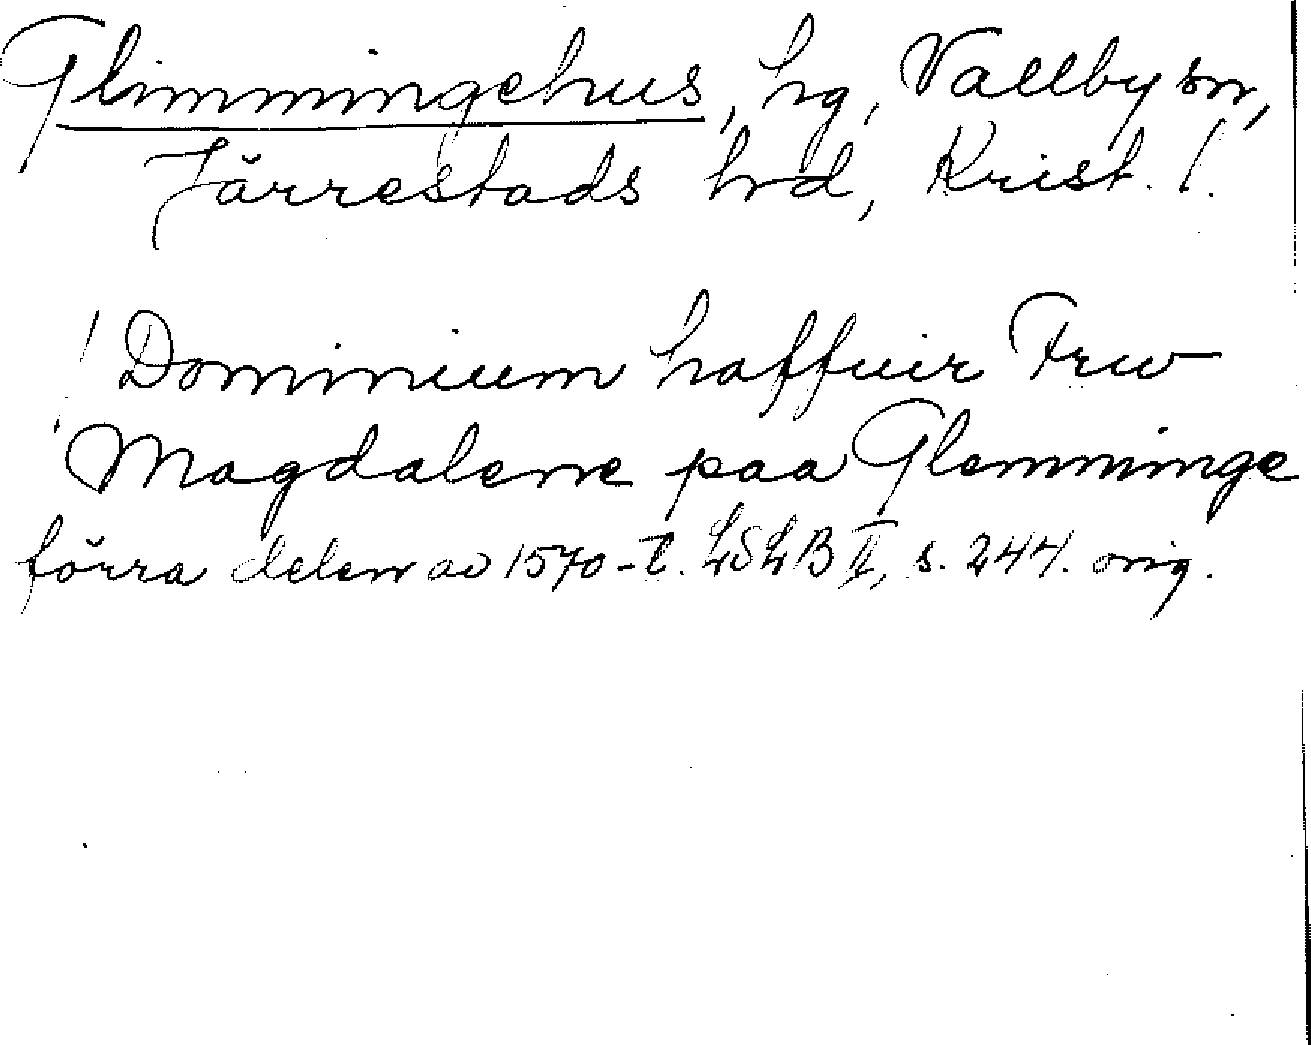 Glimmingehus, hg, Vallby sn,
Järrestads hrd, Krist. l.
Dominium haffuir Frw
Magdalene paa Glemminge
förra delen av 1570-t. LSLB II, s. 244. orig.